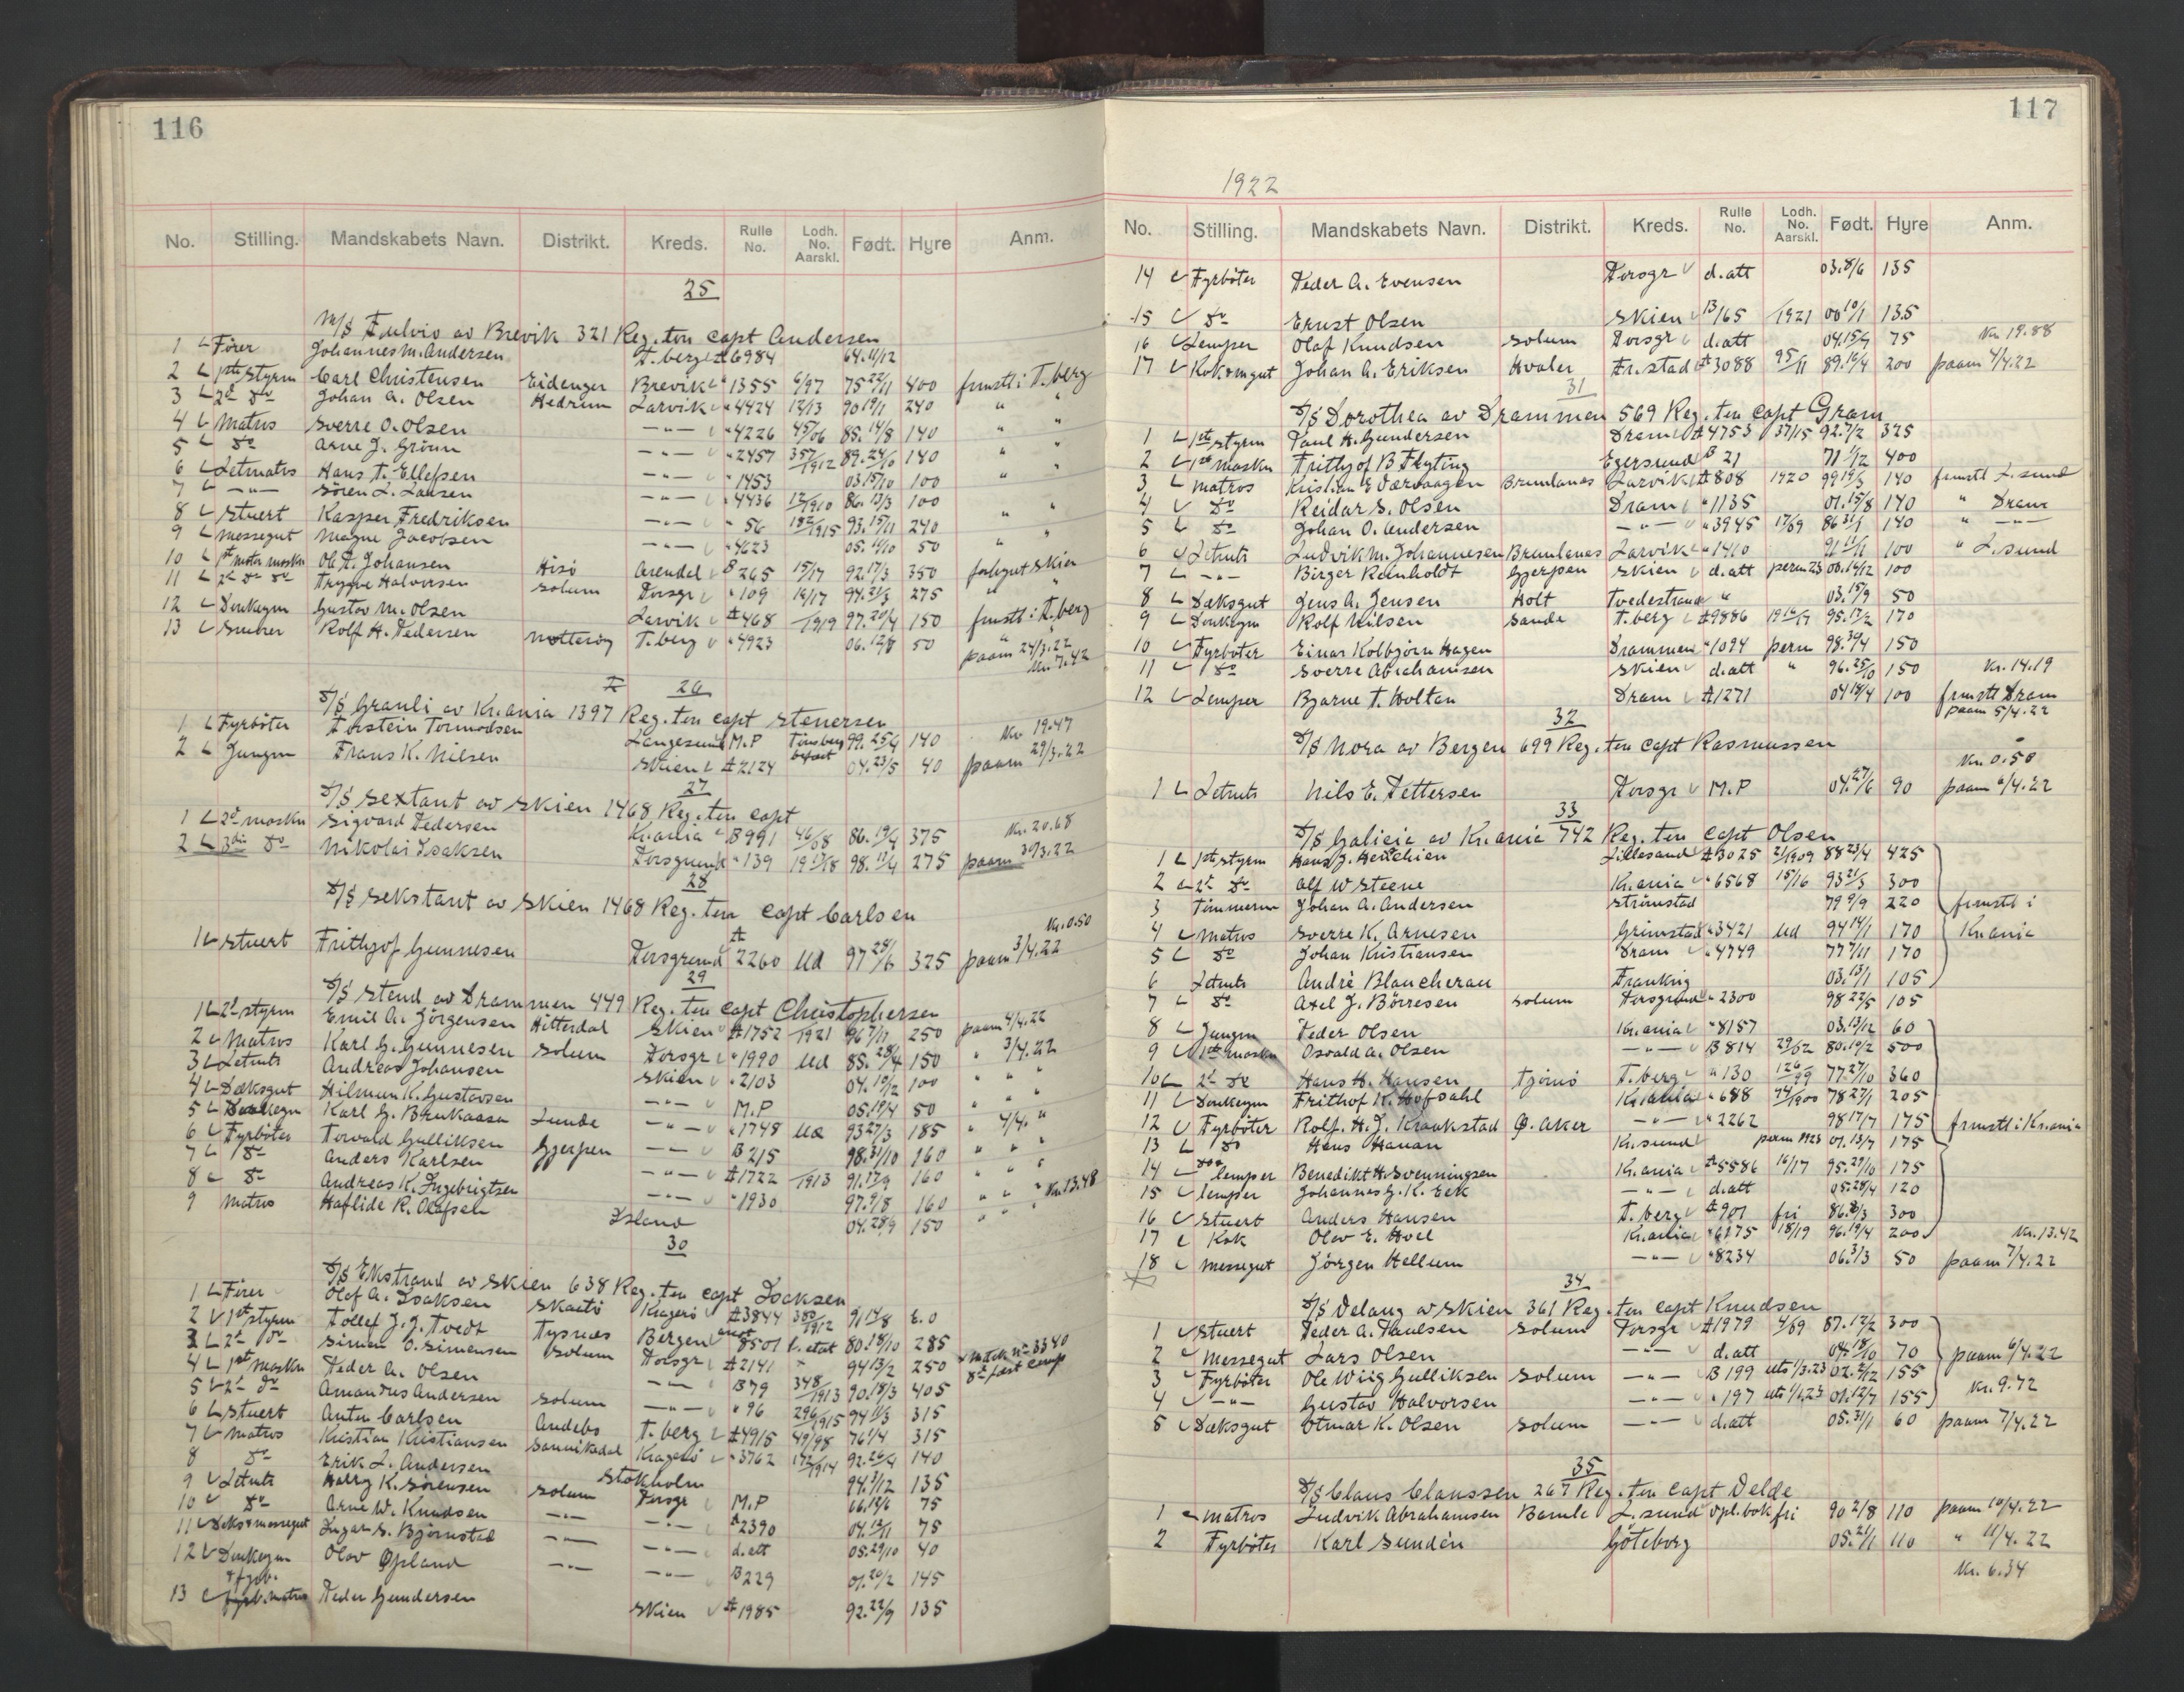 116
No. Stilling. Mandskabets Navn. Distrikt. Kreds. Rulle No. Lodh. No. Aarskl. Født. Hyre Anm.
25
M/S Fulvio av Brevik 321 Reg. ton capt Andersen
1 Fører Johannes M. Andersen T.berg A 6984 64. 11/12
2 1ste styrm Carl Christensen Eidanger Brevik " 1355 6/97 75 22/11 400 frmstl i T.berg
3 2d do Johan A. Olsen Hedrum Larvik " 4424 12/13 90 19/1 240 " "
4 Matros Sverre O. Olsen —"— " 4226 45/06 85. 14/8 140 " "
5 do Arne J. Grönn —"— " 2457 357/1912 89. 24/10 140 " "
6 Letmatros Hans T. Ellefsen —"— " 1453 03. 15/10 100 "
7 —"— Sören L. Larsen —"— " 4436 12/1910 86. 13/3 100
8 Stuert Kasper Fredriksen —"— " 56 182/1915 93. 15/11 240 " "
9 Messegut Magne Jacobsen —"— " 4623 05. 11/10 50 " "
10 1st motor maskn Ole A. Johansen Hisö Arendal B 265 15/17 92. 17/3 350 forbgut Skien
11 2d do do Trygve Halvorsen Solum Porsgr " 109 16/17 94. 21/3 275 "
12 Donkeym Gustav M. Olsen Larvik A 468 /1919 97. 20/4 150 frmstl i T.berg
13 Smører Rolf H. Pedersen Nøtterøy T.berg " 4923 06. 12/8 50 " "
paam 24/3.22
Kr. 7.42
26
S/S Granli av Kr.ania 1397 Reg. ton capt Stenersen
1 Fyrböter Torstein Tormodsen Langesund M.P Tönsberg 99. 25/4 140 Kr 19.47
2 Jungm Frans K. Nilsen Skien A 2124 04. 23/5 40 paam 29/3.22
27
S/S Sextant av Skien 1468 Reg. ton capt
1 2d maskn Sigvard Pedersen Kr.ania B 991 46/08 86. 19/4 375 Kr. 20.68
2 3die do Nikolai Isaksen Porsgrund " 139 19 17/18 98. 11/4 275 paam 30/3.22
28
S/S Sekstant av Skien 1468 Reg. ton capt Carlsen
1 Stuert Frithjof Gunnesen Porsgrund A 2260 Ud 97 28/6 325 paam 3/4.22 Kr. 0.50
29
S/S Stend av Drammen 449 Reg. ton capt Christophersen
1 2d styrm Emil A. Jörgensen Hitterdal Skien A 1752 /1921 96 7/11 250 paam 4/4.22
2 Matros Karl G. Gunnesen Solum Porsgr " 1990 Ud 85. 28/4 150 " 3/4.22
3 Letmts Andreas Johansen Skien " 2103 04. 10/2 100 " " "
4 Dæksgut Hilmun K. Gustavsen —"— M.P 05. 19/4 50 " " "
5 Donkegm Karl G. Brukaasa Lunde —"— " 1748 Ud 93 27/3 185 " 4/4. "
6 Fyrböter Torvald Gulliksen Gjerpen —"— B 215 98. 31/10 160 " " "
7 do Anders Karlsen —"— A 1722 /1913 91. 17/9 160 " " "
8 do Andreas K. Ingebrigtsen —"— " 1930 97. 9/8 160 " " "
9 Matros Haflide R. Olafsen Island 04. 28/9 150 " " " Kr. 13.48
30
S/S Ekstrand av Skien 638 Reg. ton capt Isaksen
1 Fører Olof A. Isaksen Skaatö Kragerö A 3844 380/1912 91 14/8 6.0
2 1st styrm Tollef J. J. Tvedt Tysnæs Bergen 8501 80. 18/10 285
3 2d do Simon O. Simonsen Solum Porsgr A 2141 94 13/2 250
4 1st maskn Peder A. Olsen —"— B 79 348/1913 90. 18/3 405
5 2d do Amandus Andersen Solum —"— " 96 296/1915 94 11/3 315
6 Stuert Anton Carlsen T.berg A 4915 49/98 76 1/4 315
7 Matros Kristian Kristiansen Andebo Kragerö " 3762 172/1914 92. 26/4 140
8 do Erik L. Andersen Sannikedal Stokholm 94. 3/12 135
9 Letmts Harry K. Sörensen Solum Porsgr M.P 06. 12/6 75
10 do Arne W. Knudsen —"— —"— A 2390 04. 12/11 75
11 Dæks & messegut Ingar S. Bjørnstad —"— —"— d.att 05. 29/10 40
12 Donkegm & fyrb. Olav Øpland —"— —"— B 229 01. 20/2 145
13 fyrb. matros Peder Gundersen Skien A 1985 92. 22/9 135
117
1922
No. Stilling. Mandskabets Navn. Distrikt. Kreds. Rulle No. Lodh. No. Aarskl. Født. Hyre Anm.
14 Fyrböter Peder A. Evensen Porsgr d.att 03. 8/6 135
15 do Ernst Olsen Skien B 165 /1921 00 10/1 135
16 Lemper Olaf Knudsen Solum Porsgr d.att 04. 15/7 75 Kr 19.88
17 Kok & mgut Johan A. Eriksen Hvaler Fr.stad A 3088 95/11 89. 16/4 200 paam 4/4.22
31
S/S Dorothea av Drammen 569 Reg. ton capt Gram
1 1ste styrm Paul H. Gundersen Dram A 4753 37/15 92. 7/2 325
2 1st maskn Frithjof B Flyting Egersund B 21 71 1/12 400
3 Matros Kristian E Værvaagen Brunlanæs Larvik A 808 1920 99 19/3 140 frmstl L.sund
4 do Reidar S. Olsen Dram " 1135 01. 15/8 140 " Dram
5 do Johan O. Andersen —"— " 3945 17/09 86 31/1 140 " —"—
6 Letmts Ludvik M. Johannesen Brunlanes Larvik " 1410 91 11/11 100 " L.sund
7 —"— Birger Reinholdt Gjerpen Skien d.att perm 23 00. 14/12 100
8 Dæksgut Jens A. Jensen Holt Tvedestrand " 03. 15/9 50
9 Donkegm Rolf Nilsen Sande T.berg A 9886 19 16/17 95. 17/2 170
10 Fyrböter Einar Kolbjörn Hagen Drammen " 1094 perm 98. 30/4 150
11 do Sverre Abrahamsen Skien d.att " 96. 25/10 150 Kr. 14.19
12 Lemper Bjarne T. Holtan Dram A 1271 04 18/4 100 frmstl Dram
paam 5/4.22
32
S/S Nora av Bergen 699 Reg. ton capt Rasmussen
Kr. 0.50
1 Letmts Nils E. Pettersen Porsgr M.P 04. 27/6 90 paam 6/4.22
33
S/S Galicia av Kr.ania 742 Reg. ton capt Olsen
1 1ste styrm Hans J. Lillesand A 3025 21/1909 88 23/4 425
2 2d do Alf W Steene Kr.ania " 6568 15/16 93 21/3 300
3 Timmerm Johan A. Andersen Strömstad 79 9/9 220 frmstl i
4 Matros Sverre K. Arnesen Grimstad " 3421 Ud 94 14/1 170 Kr.ania
5 do Johan Kristiansen Dram " 4749 77 7/11 170
6 Letmts André Blancherau Frankrig 03. 13/1 105
7 do Axel J. Börresen Solum Porsgrund " 2300 98 22/5 105
8 Jungm Peder Olsen Kr.ania " 8157 03. 13/12 60
9 1st maskn Osvald A. Olsen —"— B 814 29/02 80. 19/2 500
10 2d do Hans H. Hansen Tjömö T.berg " 130 126/99 77. 27/10 360
11 Donkeym Frithof K. Hofsahl Kr.ania " 688 74/1900 78 27/1 205
12 Fyrböter Rolf. H. J. Kraakstad Ø. Aker —"— " 2262 98 17/7 175 frmstl i Kr.ania
13 do Hans Hanan Kr.sund perm 1923 01. 13/7 175
14 do & lemper Benedikt H. Svenningsen Kr.ania A 5586 16/17 95. 29/10 175
15 lemper Johannes G. K. Eek —"— d.att 05. 28/4 120
16 Stuert Anders Hansen T.berg A 901 fri 86. 8/3 300
17 Kok Olav E. Hoel Kr.ania " 6175 18/19 96. 19/4 200 Kr. 13.42
18 Messegut Jörgen Hellum —"— " 8234 06. 3/3 50 paam 7/4.22
34
S/S Delaug av Skien 361 Reg. ton capt Knudsen
1 Stuert Peder A. Paulsen Solum Porsgr A 1979 4/09 87. 12/2 300
2 Messegut Lars Olsen —"— d.att 04. 18/10 70 paam 6/4.22
3 Fyrböter Ole Wiig Gulliksen Solum —"— B 199 uts 1/3.23 02. 2/12 155
4 —"— Gustav Halvorsen —"— " 197 uts 1/1.23 01. 12/7 155 Kr. 9.72
5 Dæksgut Otmar K. Olsen Solum —"— d.att 05. 31/1 60 paam 7/4.22
35
S/S Claus Clanssen 267 Reg. ton capt Delde
1 Matros Ludvik Abrahamsen Bamle L.sund opl.bok fri 90 2/8 110 paam 10/4.22
2 Fyrböter Karl Sundén Göteborg 05. 21/1 110 " 11/4.22
Kr. 6.34